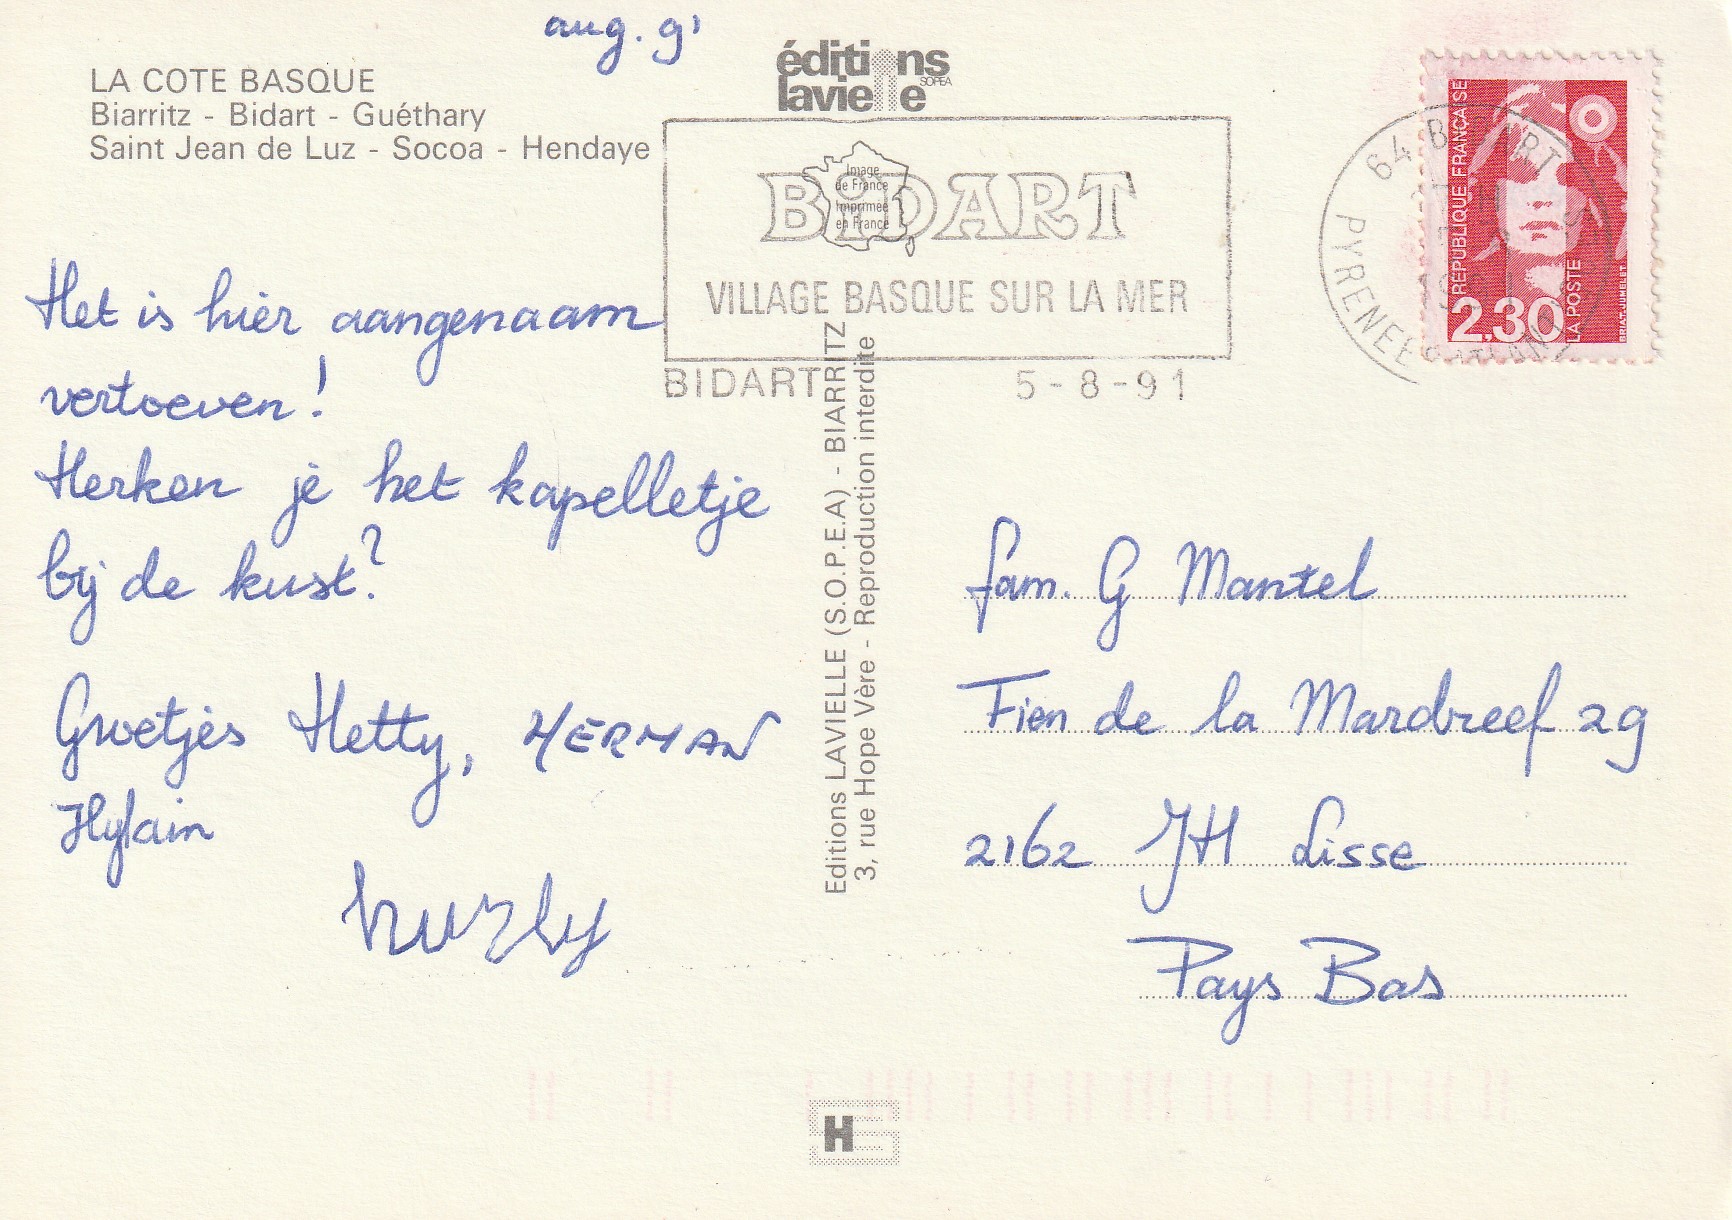 aug. 91
LA COTE BASQUE
Biarritz - Bidart - Guéthary
Saint Jean de Luz - Socoa - Hendaye
éditions
lavielle
SOPEA
BIDART
Image
de France
Imprimée
en France
VILLAGE BASQUE SUR LA MER
BIDART 5-8-91
64 BIDART
PYRENEES
REPUBLIQUE FRANÇAISE
2,30
LA POSTE
BRIAT-JUMELET
Het is hier aangenaam
vertoeven!
Herken je het kapelletje
bij de kust?
Groetjes Hetty, HERMAN
Editions LAVIELLE (S.O.P.E.A) - BIARRITZ
3, rue Hope Vère - Reproduction interdite
fam. G Mantel
Fien de la Mardreef 29
2162 JH Lisse
Pays Bas
HS